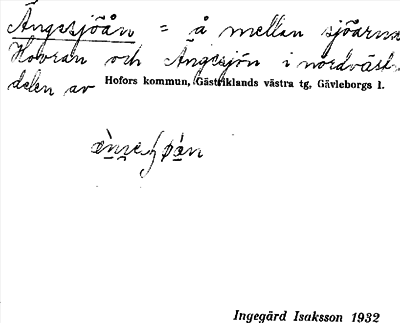 Ängesjöån = å mellan sjöarna
Hovran och Ängesjön i nordväst-
delen av Hofors kommun, Gästriklands västra tg, Gävleborgs l.
Ingegärd Isaksson 1932